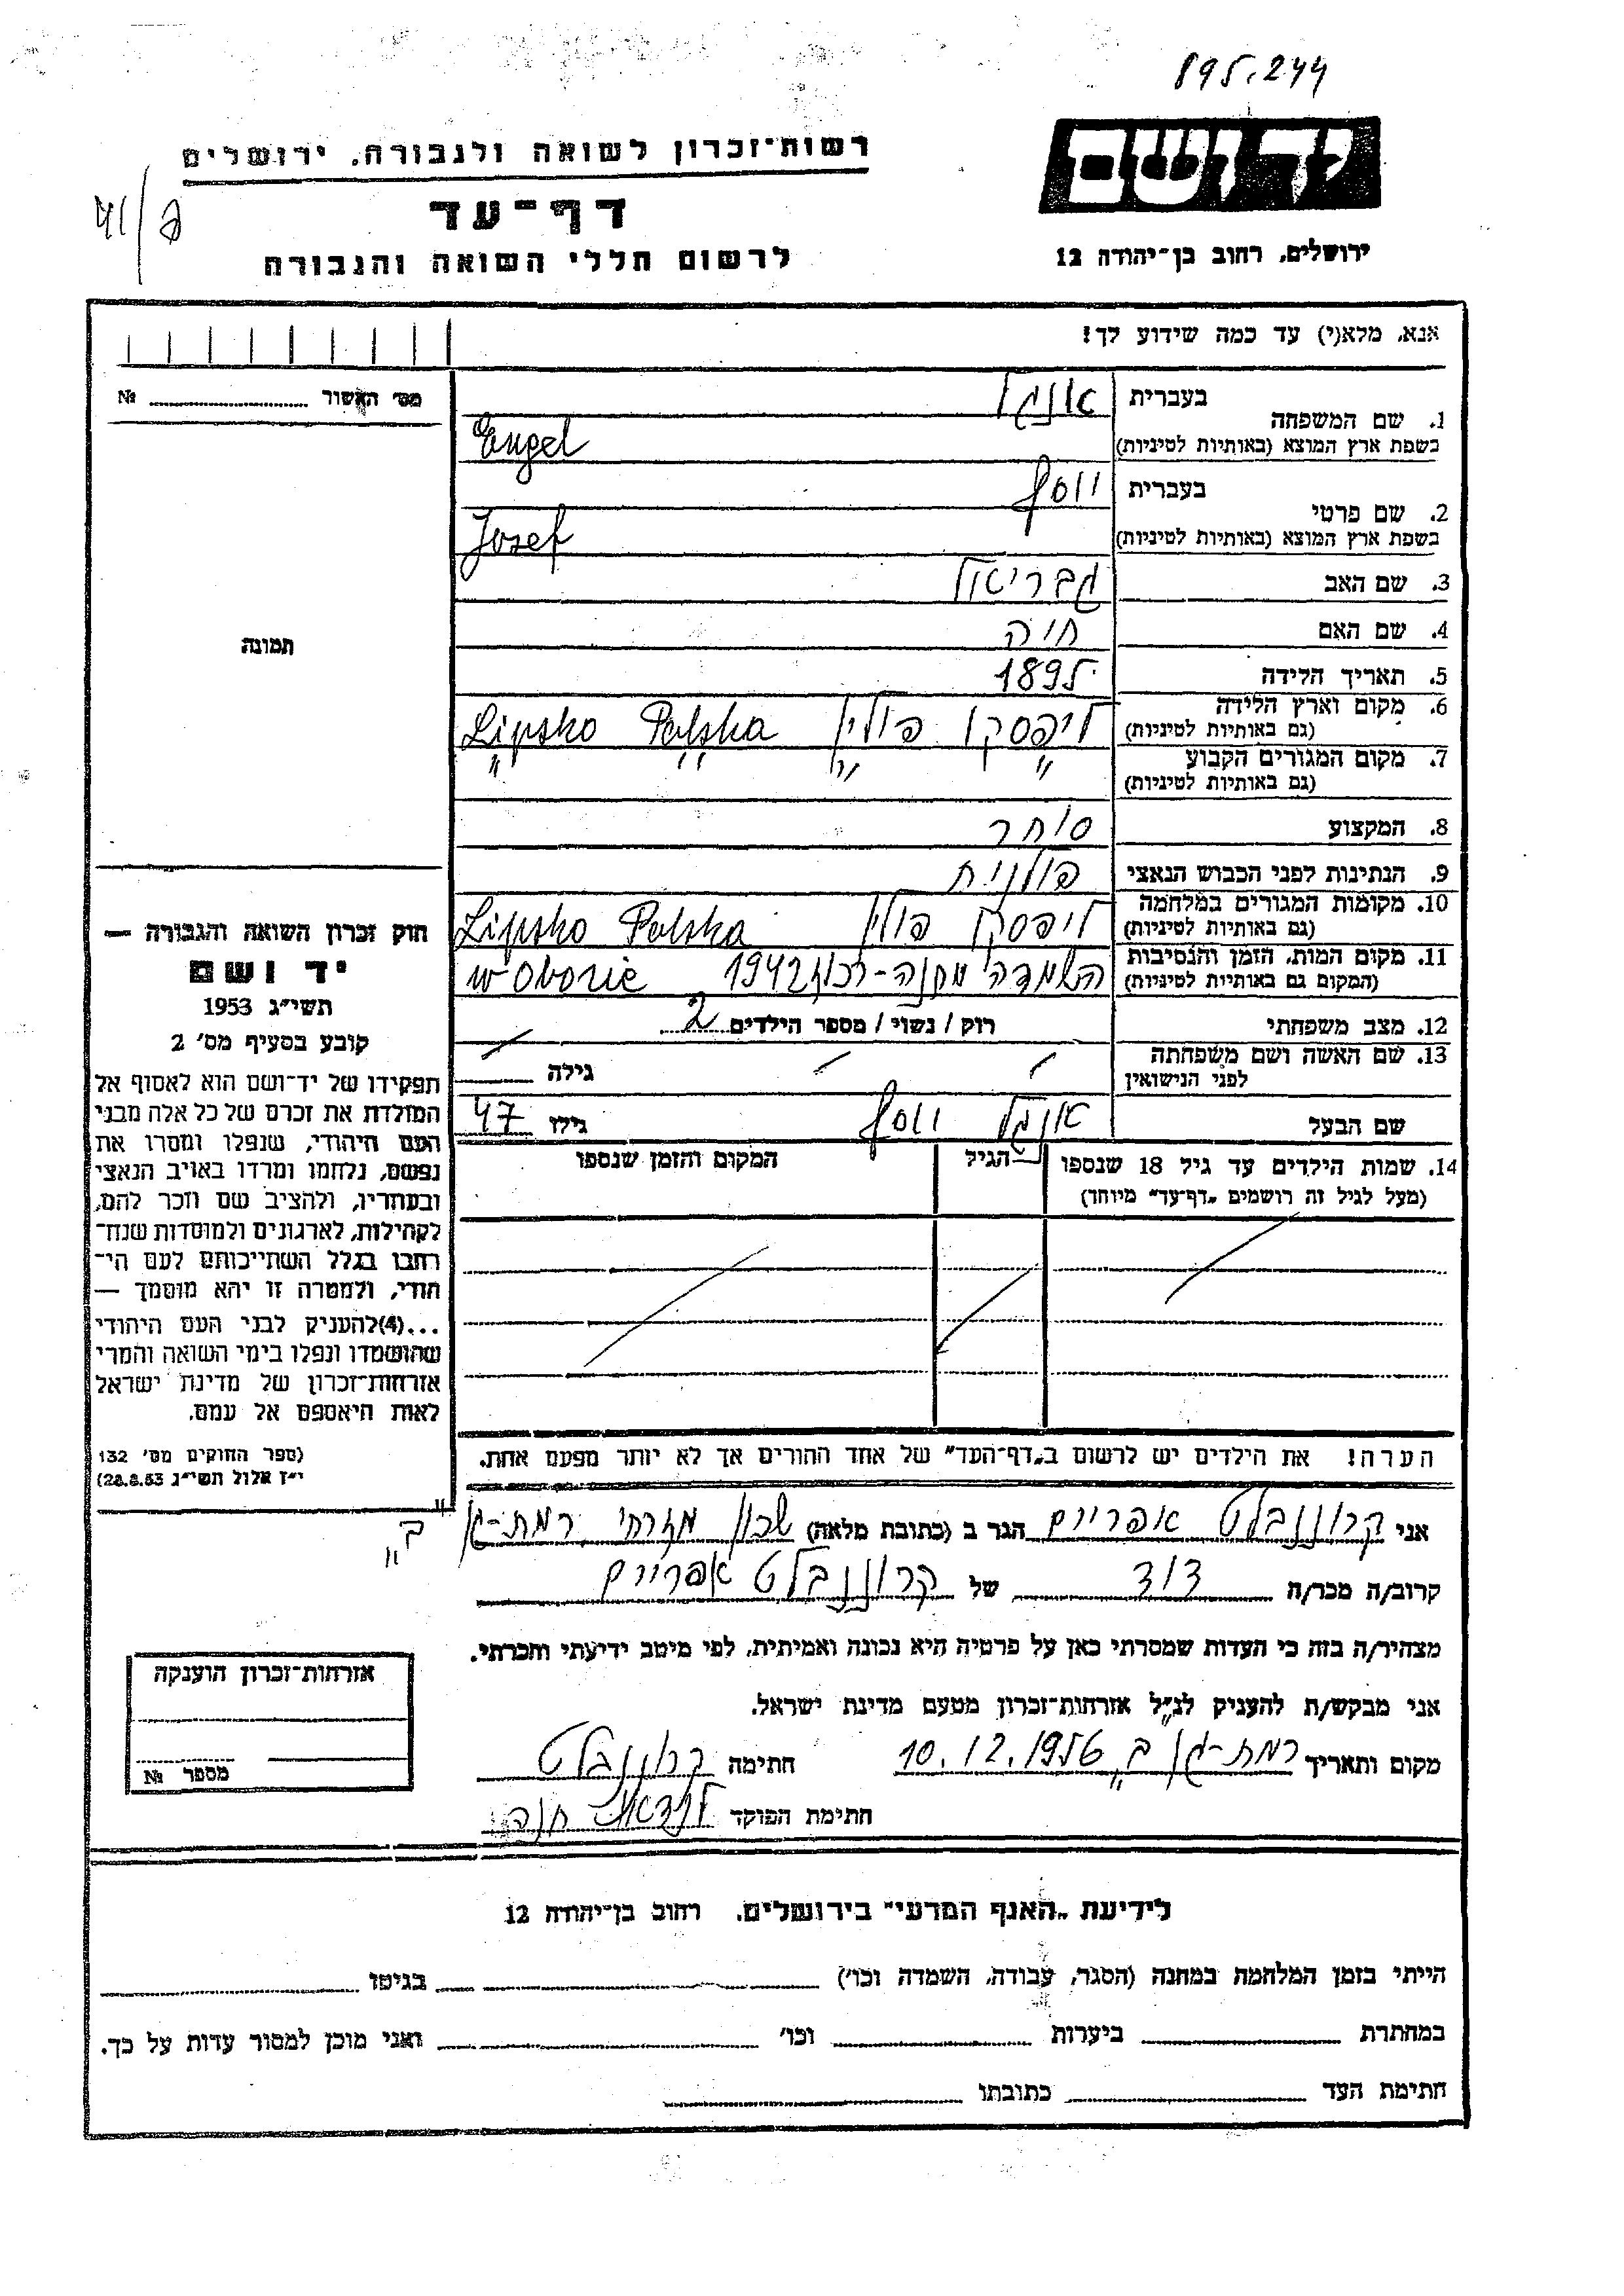 895.244
יד ושם
ירושלים, רחוב בן־יהודה 12
רשות־זכרון לשואה ולגבורה, ירושלים
דף־עד
לרשום חללי השואה והגבורה
אנא, מלא(י) עד כמה שידוע לך!
מס׳ האשור № ..........
תמונה
1. שם המשפחה בעברית אנגל
בשפת ארץ המוצא (באותיות לטיניות) Engel
2. שם פרטי בעברית יוסף
בשפת ארץ המוצא (באותיות לטיניות) Josef
3. שם האב גבריאל
4. שם האם חיה
5. תאריך הלידה 1895
6. מקום וארץ הלידה (גם באותיות לטיניות) ליפסקו פולין Lipsko Polska
7. מקום המגורים הקבוע (גם באותיות לטיניות) " " " "
8. המקצוע סוחר
9. הנתינות לפני הכבוש הנאצי פולנית
10. מקומות המגורים במלחמה (גם באותיות לטיניות) ליפסקו פולין Lipsko Polska
11. מקום המות, הזמן והנסיבות (המקום גם באותיות לטיניות) השמדה מחנה 1942 w Oborze
12. מצב משפחתי רוק / נשוי / מספר הילדים 2
13. שם האשה ושם משפחתה לפני הנישואין גילה
שם הבעל אנגל יוסף גילו 47
14. שמות הילדים עד גיל 18 שנספו הגיל המקום והזמן שנספו
(מעל לגיל זה רושמים „דף־עד" מיוחד)
הערה! את הילדים יש לרשום ב„דף־העד" של אחד ההורים אך לא יותר מפעם אחת.
חוק זכרון השואה והגבורה —
יד ושם
תשי״ג 1953
קובע בסעיף מס׳ 2
תפקידו של יד־ושם הוא לאסוף אל
המולדת את זכרם של כל אלה מבני
העם היהודי, שנפלו ומסרו את
נפשם, נלחמו ומרדו באויב הנאצי
ובעוזריו, ולהציב שם וזכר להם,
לקהילות, לארגונים ולמוסדות שנח־
רבו בגלל השתייכותם לעם הי־
הודי, ולמטרה זו יהא מוסמך —
...(4)להעניק לבני העם היהודי
שהושמדו ונפלו בימי השואה והמרי
אזרחות־זכרון של מדינת ישראל
לאות היאספם אל עמם.
(ספר החוקים מס׳ 132
י״ז אלול תשי״ג 28.8.53)
אני קרוננבלט אפריים הגר ב (כתובת מלאה) שכון מזרחי רמת-גן
"ב"
קרוב/ה מכר/ה דוד של קרוננבלט אפריים
מצהיר/ה בזה כי העדות שמסרתי כאן על פרטיה היא נכונה ואמיתית, לפי מיטב ידיעתי והכרתי.
אני מבקש/ת להעניק לנ״ל אזרחות־זכרון מטעם מדינת ישראל.
מקום ותאריך רמת-גן "ב" 10.12.1956 חתימה קרוננבלט
חתימת הפוקד לנדאו חנה
אזרחות־זכרון הוענקה
מספר №
לידיעת „האגף המדעי" בירושלים, רחוב בן־יהודה 12
הייתי בזמן המלחמה במחנה (הסגר, עבודה, השמדה וכו׳) .......... בגיטו ..........
במחתרת .......... ביערות .......... וכו׳ .......... ואני מוכן למסור עדות על כך.
חתימת העד .......... כתובתו ..........